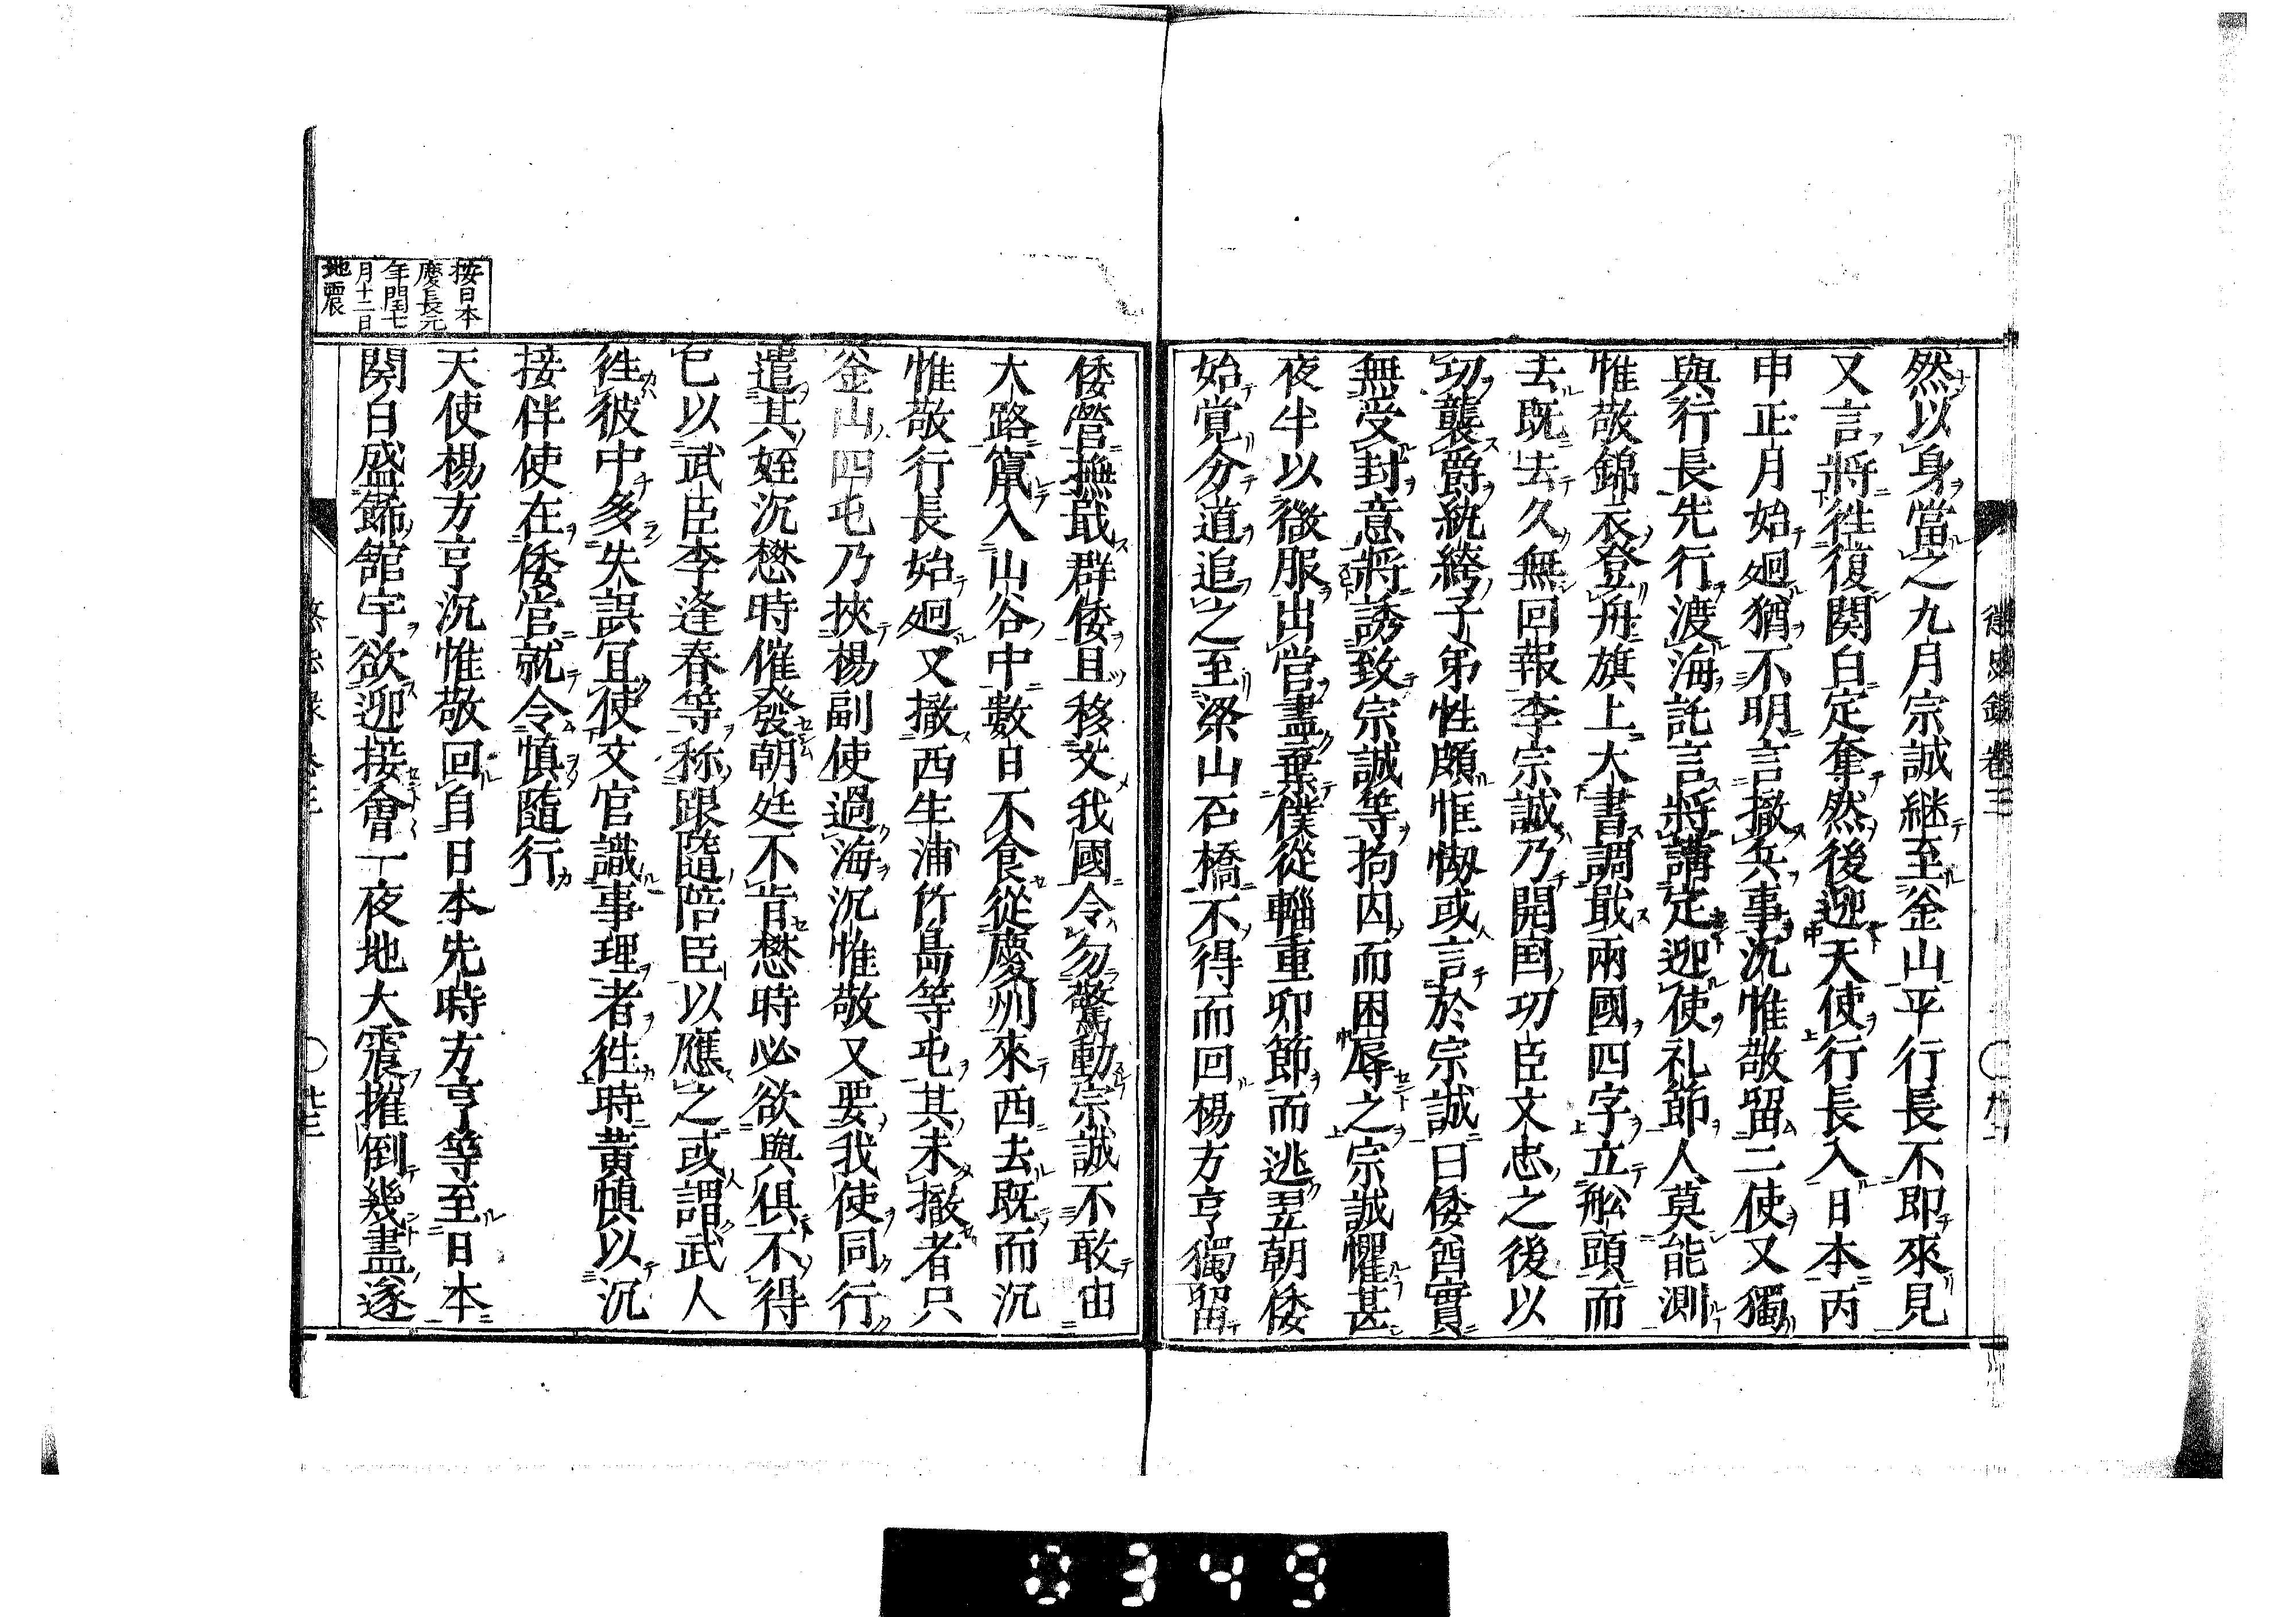 然以身當之九月宗誠継至釜山平行長不即來見
又言將徃復関白定奪然後迎天使行長入日本丙
申正月始廻猶不明言撤兵事沉惟敬留二使又獨
與行長先行渡海託言將講定迎使礼節人莫能測
惟敬錦衣登舟旗上大書調戢兩國四字立舩頭而
去既去久無回報李宗誠乃開囯功臣文忠之後以
功襲爵紈綺子弟性頗恇㥘或言於宗誠曰倭酋實
無受封意將誘致宗誠等拘囚而困辱之宗誠懼甚
夜半以微服出営盡棄僕從輜重卯節而逃翌朝倭
始覚分道追之至梁山石橋不得而回楊方亨獨留
倭營撫戢群倭且移文我國令勿驚動宗誠不敢由
大路竄入山谷中數日不食從慶州來西去既而沉
惟敬行長始廻又撤西生浦竹島等屯其未撤者只
釜山四屯乃挾楊副使過海沉惟敬又要我使同行
遣其姪沉懋時催發朝廷不肯懋時必欲與俱不得
已以武臣李逢春等称跟隨陪臣以應之或謂武人
徃彼中多失誤冝使文官識事理者徃時黄愼以沉
接伴使在倭営就令愼隨行
天使楊方亨沉惟敬回自日本先時方亨等至日本
関白盛飾舘宇欲迎接會一夜地大震摧倒幾盡遂
按日本
慶長元
年閏七
月十二日
地震
0349